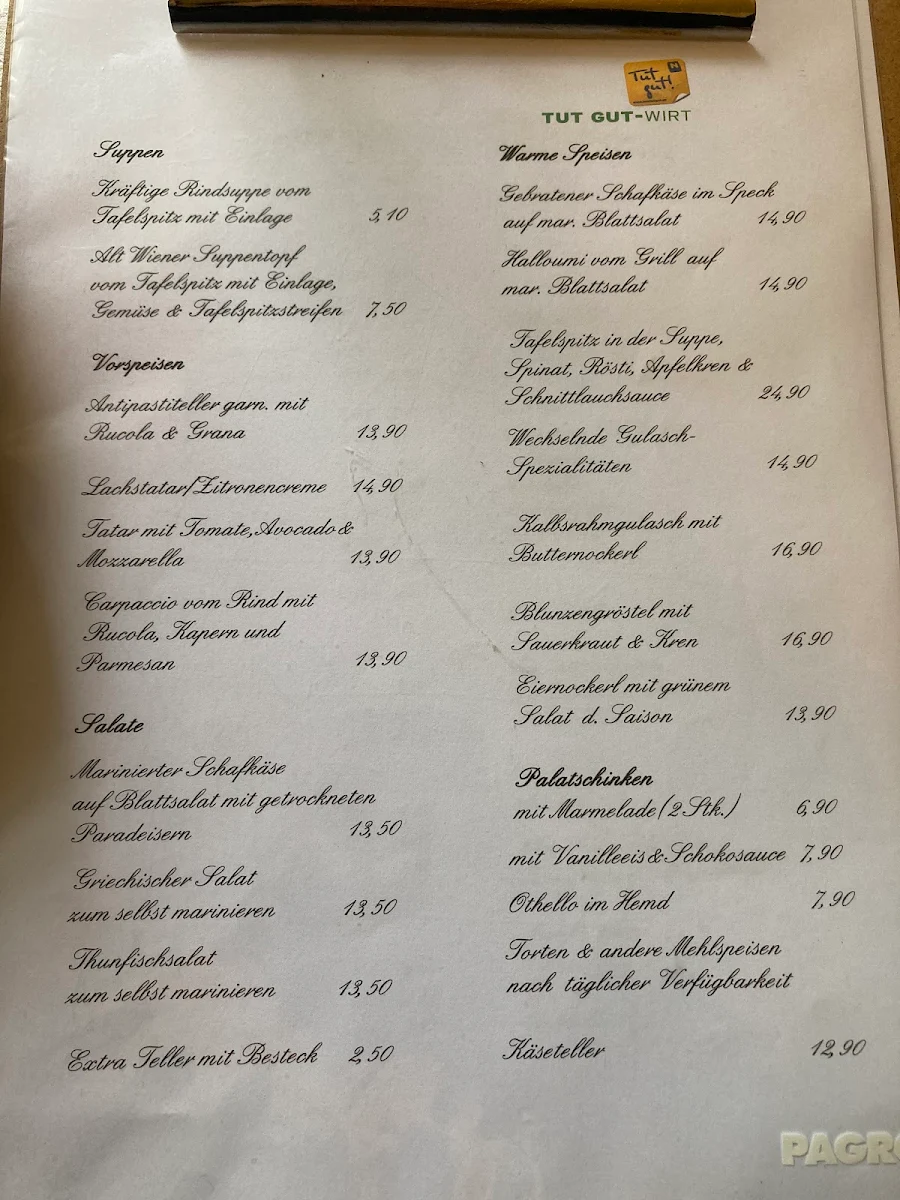 Tut
gut!
TUT GUT-WIRT
Suppen
Kräftige Rindsuppe vom
Tafelspitz mit Einlage 5,10
Alt Wiener Suppentopf
vom Tafelspitz mit Einlage,
Gemüse & Tafelspitzstreifen 7,50
Vorspeisen
Antipastiteller garn. mit
Rucola & Grana 13,90
Lachstatar/Zitronencreme 14,90
Tatar mit Tomate, Avocado &
Mozzarella 13,90
Carpaccio vom Rind mit
Rucola, Kapern und
Parmesan 13,90
Salate
Marinierter Schafkäse
auf Blattsalat mit getrockneten
Paradeisern 13,50
Griechischer Salat
zum selbst marinieren 13,50
Thunfischsalat
zum selbst marinieren 13,50
Extra Teller mit Besteck 2,50
Warme Speisen
Gebratener Schafkäse im Speck
auf mar. Blattsalat 14,90
Halloumi vom Grill auf
mar. Blattsalat 14,90
Tafelspitz in der Suppe,
Spinat, Rösti, Apfelkren &
Schnittlauchsauce 24,90
Wechselnde Gulasch-
Spezialitäten 14,90
Kalbsrahmgulasch mit
Butternockerl 16,90
Blunzengröstel mit
Sauerkraut & Kren 16,90
Eiernockerl mit grünem
Salat d. Saison 13,90
Palatschinken
mit Marmelade (2 Stk.) 6,90
mit Vanilleeis & Schokosauce 7,90
Othello im Hemd 7,90
Torten & andere Mehlspeisen
nach täglicher Verfügbarkeit
Käseteller 12,90